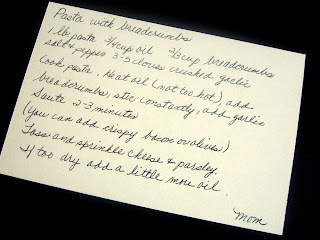 Pasta with breadcrumbs
1 lb pasta 3/4 cup oil 2/3 cup breadcrumbs
salt & pepper 3-5 cloves crushed garlic
Cook pasta. Heat oil (not too hot), add
breadcrumbs, stir constantly, add garlic
Saute 2-3 minutes
(you can add crispy bacon or olives)
Toss and sprinkle cheese & parsley.
If too dry add a little more oil.
Mom